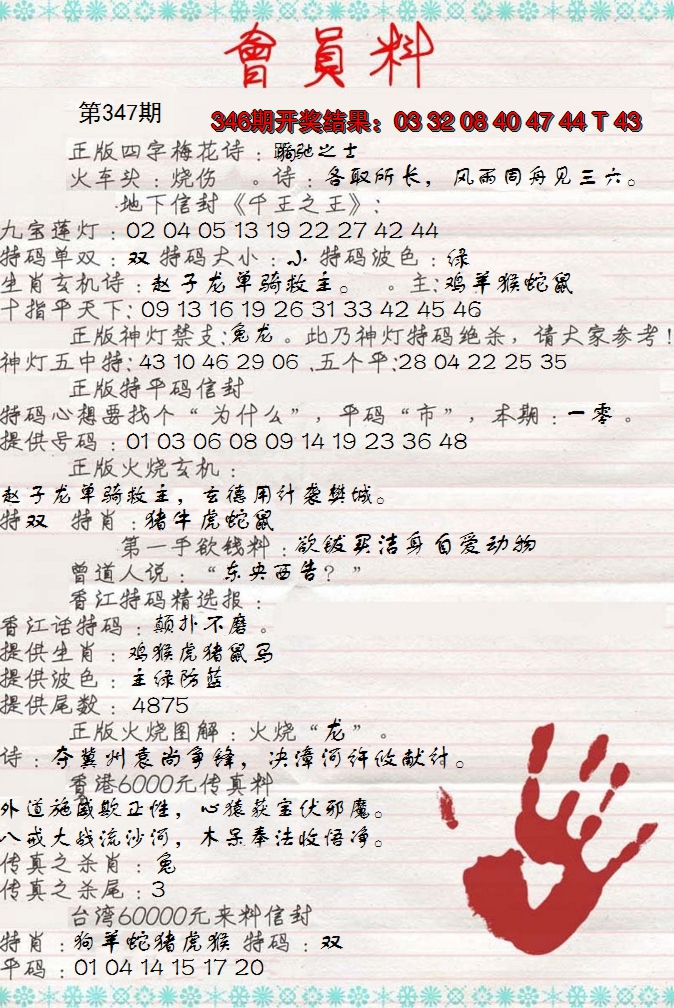 會員料
第347期
346期开奖结果：03 32 08 40 47 44 T 43
正版四字梅花诗：跅弛之士
火车头：烧伤 。诗：各取所长，风雨同舟见三六。
地下信封《千王之王》：
九宝莲灯：02 04 05 13 19 22 27 42 44
特码单双：双 特码大小：小 特码波色：绿
生肖玄机诗：赵子龙单骑救主。 。主：鸡羊猴蛇鼠
十指平天下：09 13 16 19 26 31 33 42 45 46
正版神灯禁支：兔龙。此乃神灯特码绝杀，请大家参考！
神灯五中特：43 10 46 29 06 .五个平：28 04 22 25 35
正版特平码信封
特码心想要找个“为什么”，平码“市”，本期：一零。
提供号码：01 03 06 08 09 14 19 23 36 48
正版火烧玄机：
赵子龙单骑救主，玄德用计袭樊城。
特双 特肖：猪牛虎蛇鼠
第一手欲钱料：欲钱买洁身自爱动物
曾道人说：“东央西告？”
香江特码精选报：
香江话特码：颠扑不磨。
提供生肖：鸡猴虎猪鼠马
提供波色：主绿防蓝
提供尾数：4875
正版火烧图解：火烧“龙”。
诗：夺冀州袁尚争锋，决漳河许攸献计。
香港6000元传真料
外道施威欺正性，心猿获宝伏邪魔。
八戒大战流沙河，木呆奉法收悟净。
传真之杀肖：兔
传真之杀尾：3
台湾60000元来料信封
特肖：狗羊蛇猪虎猴 特码：双
平码：01 04 14 15 17 20